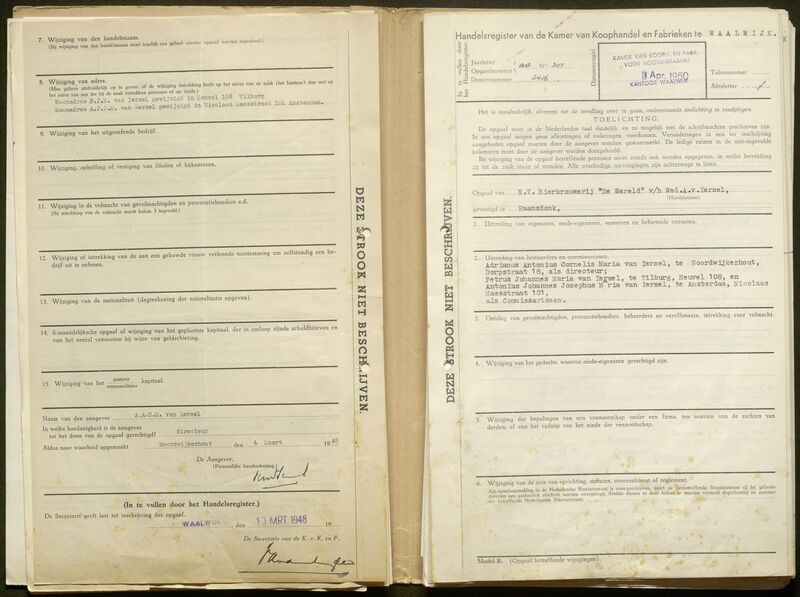 7. Wijziging van den handelsnaam.
(Bij wijziging van den handelsnaam moet tegelijk een geheel nieuwe opgaaf worden ingediend.)
8. Wijziging van adres.
(Men gelieve uitdrukkelijk op te geven, of de wijziging betrekking heeft op het adres van de zaak (het kantoor) dan wel op
het adres van een der bij de zaak betrokken personen of op beide.)
Woonadres P.J.M. van Iersel gewijzigd in Heuvel 108 Tilburg
Woonadres A.J.J.M. van Iersel gewijzigd in Nicolaas Maesstraat 101 Amsterdam.
9. Wijziging van het uitgeoefende bedrijf.
10. Wijziging, opheffing of vestiging van filialen of bijkantoren.
11. Wijziging in de volmacht van gevolmachtigden en procuratiehouders e.d.
(Bij intrekking van de volmacht wordt kolom 3 ingevuld.)
12. Wijziging of intrekking van de aan een gehuwde vrouw verleende toestemming om zelfstandig een be-
drijf uit te oefenen.
13. Wijziging van de nationaliteit (dagteekening der naturalisatie opgeven).
14. 6-maandelijksche opgaaf of wijziging van het geplaatste kapitaal, der in omloop zijnde schuldbrieven en
van het aantal vennooten bij wijze van geldschieting.
15. Wijziging van het gestorte / commanditaire kapitaal.
Naam van den aangever A.A.C.M. van Iersel
In welke hoedanigheid is de aangever
tot het doen van de opgaaf gerechtigd? directeur
Aldus naar waarheid opgemaakt Noordwijkerhout, den 6 Maart 1948
De Aangever,
(Persoonlijke handteekening.)
(In te vullen door het Handelsregister.)
De Secretaris geeft last tot inschrijving der opgaaf.
WAALWIJK, den 13 MRT 1948 19
De Secretaris van de K. v. K. en F.,
DEZE STROOK NIET BESCHRIJVEN.
DEZE STROOK NIET BESCHRIJVEN.
Handelsregister van de Kamer van Koophandel en Fabrieken te WAALWIJK.
In te vullen door het Handelsregister.
Jaarletter
Opgaafnummer
Dossiernummer 2416
Datumstempel
KAMER VAN KOOPH. EN FABR.
VOOR NOORD-BRABANT
3 Apr. 1950
KANTOOR WAALWIJK
Talonnummer
Akteletter
Het is noodzakelijk, alvorens tot de invulling over te gaan, onderstaande toelichting te raadplegen.
TOELICHTING.
De opgaaf moet in de Nederlandse taal duidelijk en zo mogelijk met de schrijfmachine geschreven zijn.
In een opgaaf mogen geen afkortingen of raderingen voorkomen. Veranderingen in een ter inschrijving
aangeboden opgaaf moeten door de aangever worden gewaarmerkt. De ledige ruimte in de niet-ingevulde
kolommen moet door de aangever worden doorgehaald.
Bij wijziging van de opgaaf betreffende personen moet steeds ook worden opgegeven, in welke betrekking
zij tot de zaak staan of stonden. Alle overbodige toevoegingen zijn achterwege te laten.
Opgaaf van N.V. Bierbrouwerij "De Wereld" v/h Wed.A.v.Iersel,
(Handelsnaam)
gevestigd te Raamsdonk,
1. Uittreding van eigenaren, mede-eigenaren, vennoten en beherende vennoten.
2. Uittreding van bestuurders en commissarissen.
Adrianus Antonius Cornelis Maria van Iersel, te Noordwijkerhout,
Dorpstraat 18, als directeur;
Petrus Johannes Maria van Iersel, te Tilburg, Heuvel 108, en
Antonius Johannes Josephus Maria van Iersel, te Amsterdam, Nicolaas
Maesstraat 101,
als Commissarissen.
3. Ontslag van gevolmachtigden, procuratiehouders, beheerders en vereffenaars, intrekking ener volmacht.
4. Wijziging van het gedeelte, waartoe mede-eigenaren gerechtigd zijn.
5. Wijziging der bepalingen van een vennootschap onder een firma, ten aanzien van de rechten van
derden, of van het tijdstip van het einde der vennootschap.
6. Wijziging van de acte van oprichting, statuten, overeenkomst of reglement.
Model R. (Opgaaf betreffende wijzigingen).